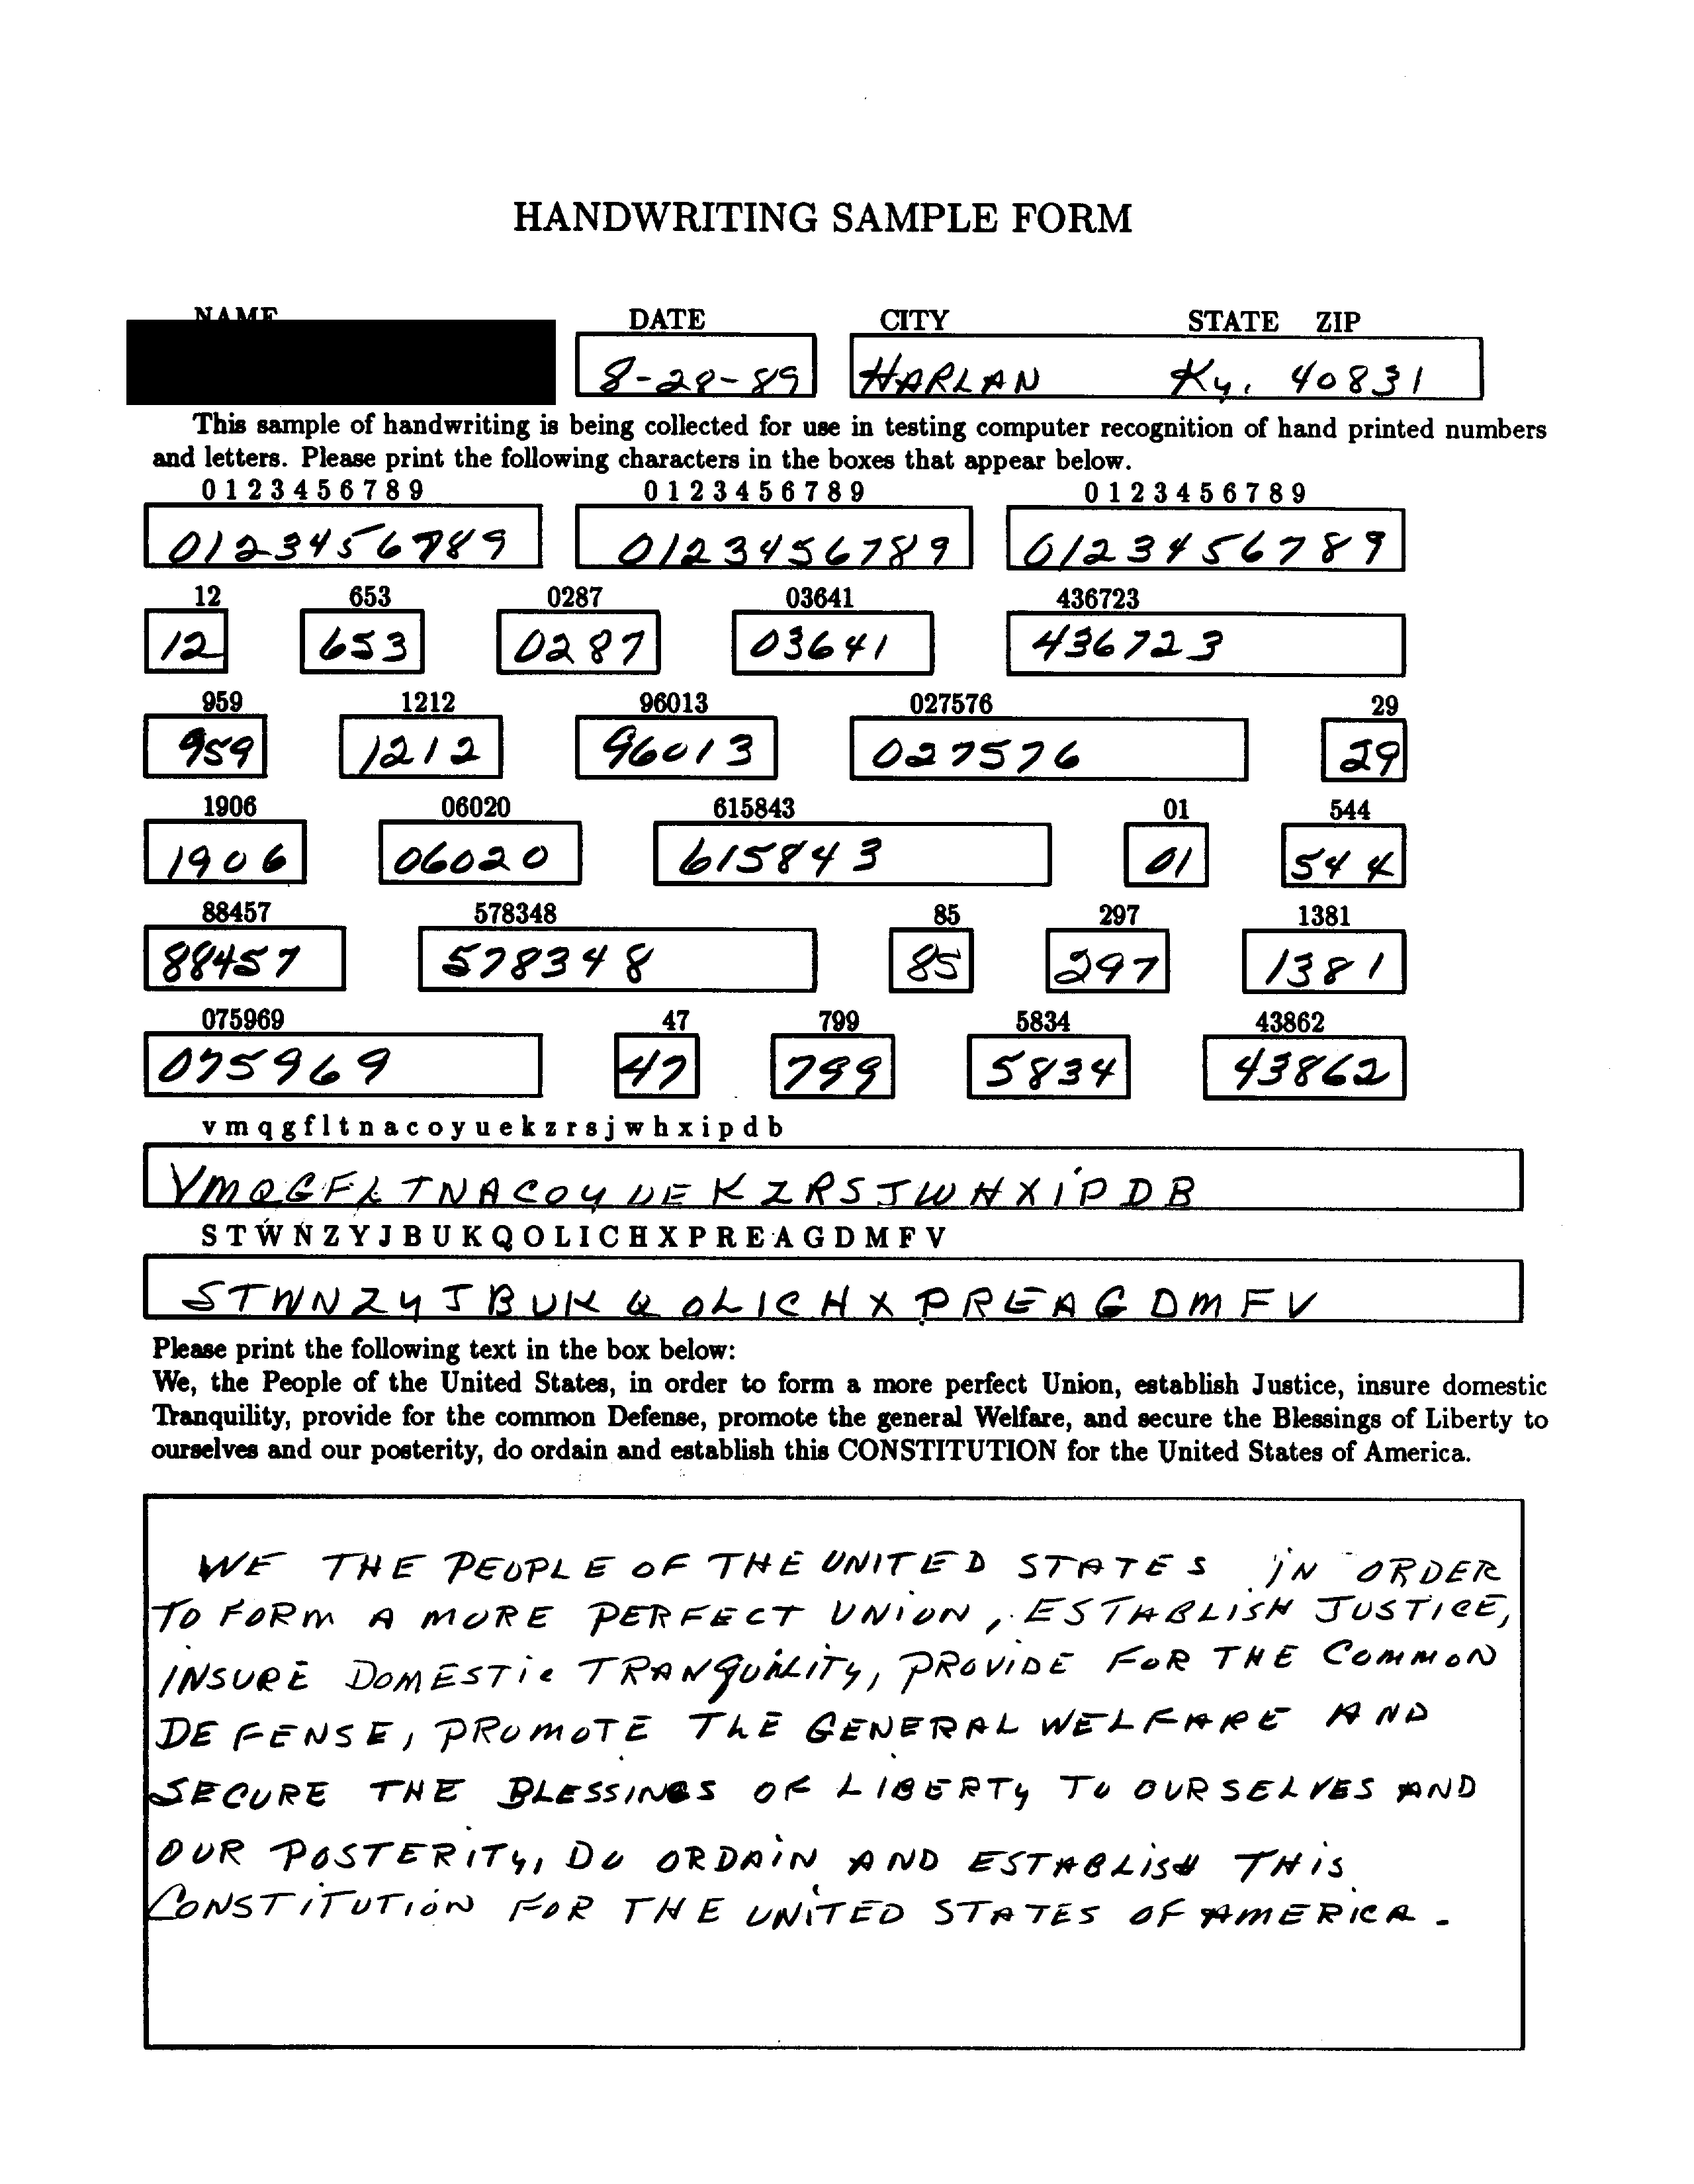 HANDWRITING SAMPLE FORM
NAME DATE CITY STATE ZIP
8-28-89 HARLAN Ky. 40831
This sample of handwriting is being collected for use in testing computer recognition of hand printed numbers
and letters. Please print the following characters in the boxes that appear below.
0 1 2 3 4 5 6 7 8 9 0 1 2 3 4 5 6 7 8 9 0 1 2 3 4 5 6 7 8 9
0123456789 0123456789 0123456789
12 653 0287 03641 436723
12 653 0287 03641 436723
959 1212 96013 027576 29
959 1212 96013 027576 29
1906 06020 615843 01 544
1906 06020 615843 01 544
88457 578348 85 297 1381
88457 578348 85 297 1381
075969 47 799 5834 43862
075969 47 799 5834 43862
v m q g f l t n a c o y u e k z r s j w h x i p d b
VMQGFLTNACOYUEKZRSJWHXIPDB
S T W N Z Y J B U K Q O L I C H X P R E A G D M F V
STWNZYJBUKQOLICHXPREAGDMFV
Please print the following text in the box below:
We, the People of the United States, in order to form a more perfect Union, establish Justice, insure domestic
Tranquility, provide for the common Defense, promote the general Welfare, and secure the Blessings of Liberty to
ourselves and our posterity, do ordain and establish this CONSTITUTION for the United States of America.
WE THE PEOPLE OF THE UNITED STATES IN ORDER
TO FORM A MORE PERFECT UNION, ESTABLISH JUSTICE,
INSURE DOMESTIC TRANQUILITY, PROVIDE FOR THE COMMON
DEFENSE, PROMOTE THE GENERAL WELFARE AND
SECURE THE BLESSINGS OF LIBERTY TO OURSELVES AND
OUR POSTERITY, DO ORDAIN AND ESTABLISH THIS
CONSTITUTION FOR THE UNITED STATES OF AMERICA.